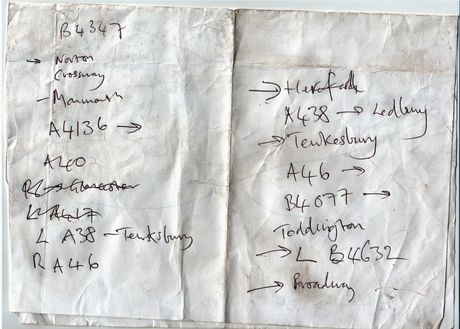 B4347
→ Norton
Crossway
- Monmouth
A4136 →
A40
R6 → Gloucester
L A417
L A38 - Tewksbury
R A46
→ Hereford
A438 → Ledbury
→ Tewkesbury
A46 →
B4077 →
Toddington
→ L B4632
→ Broadway